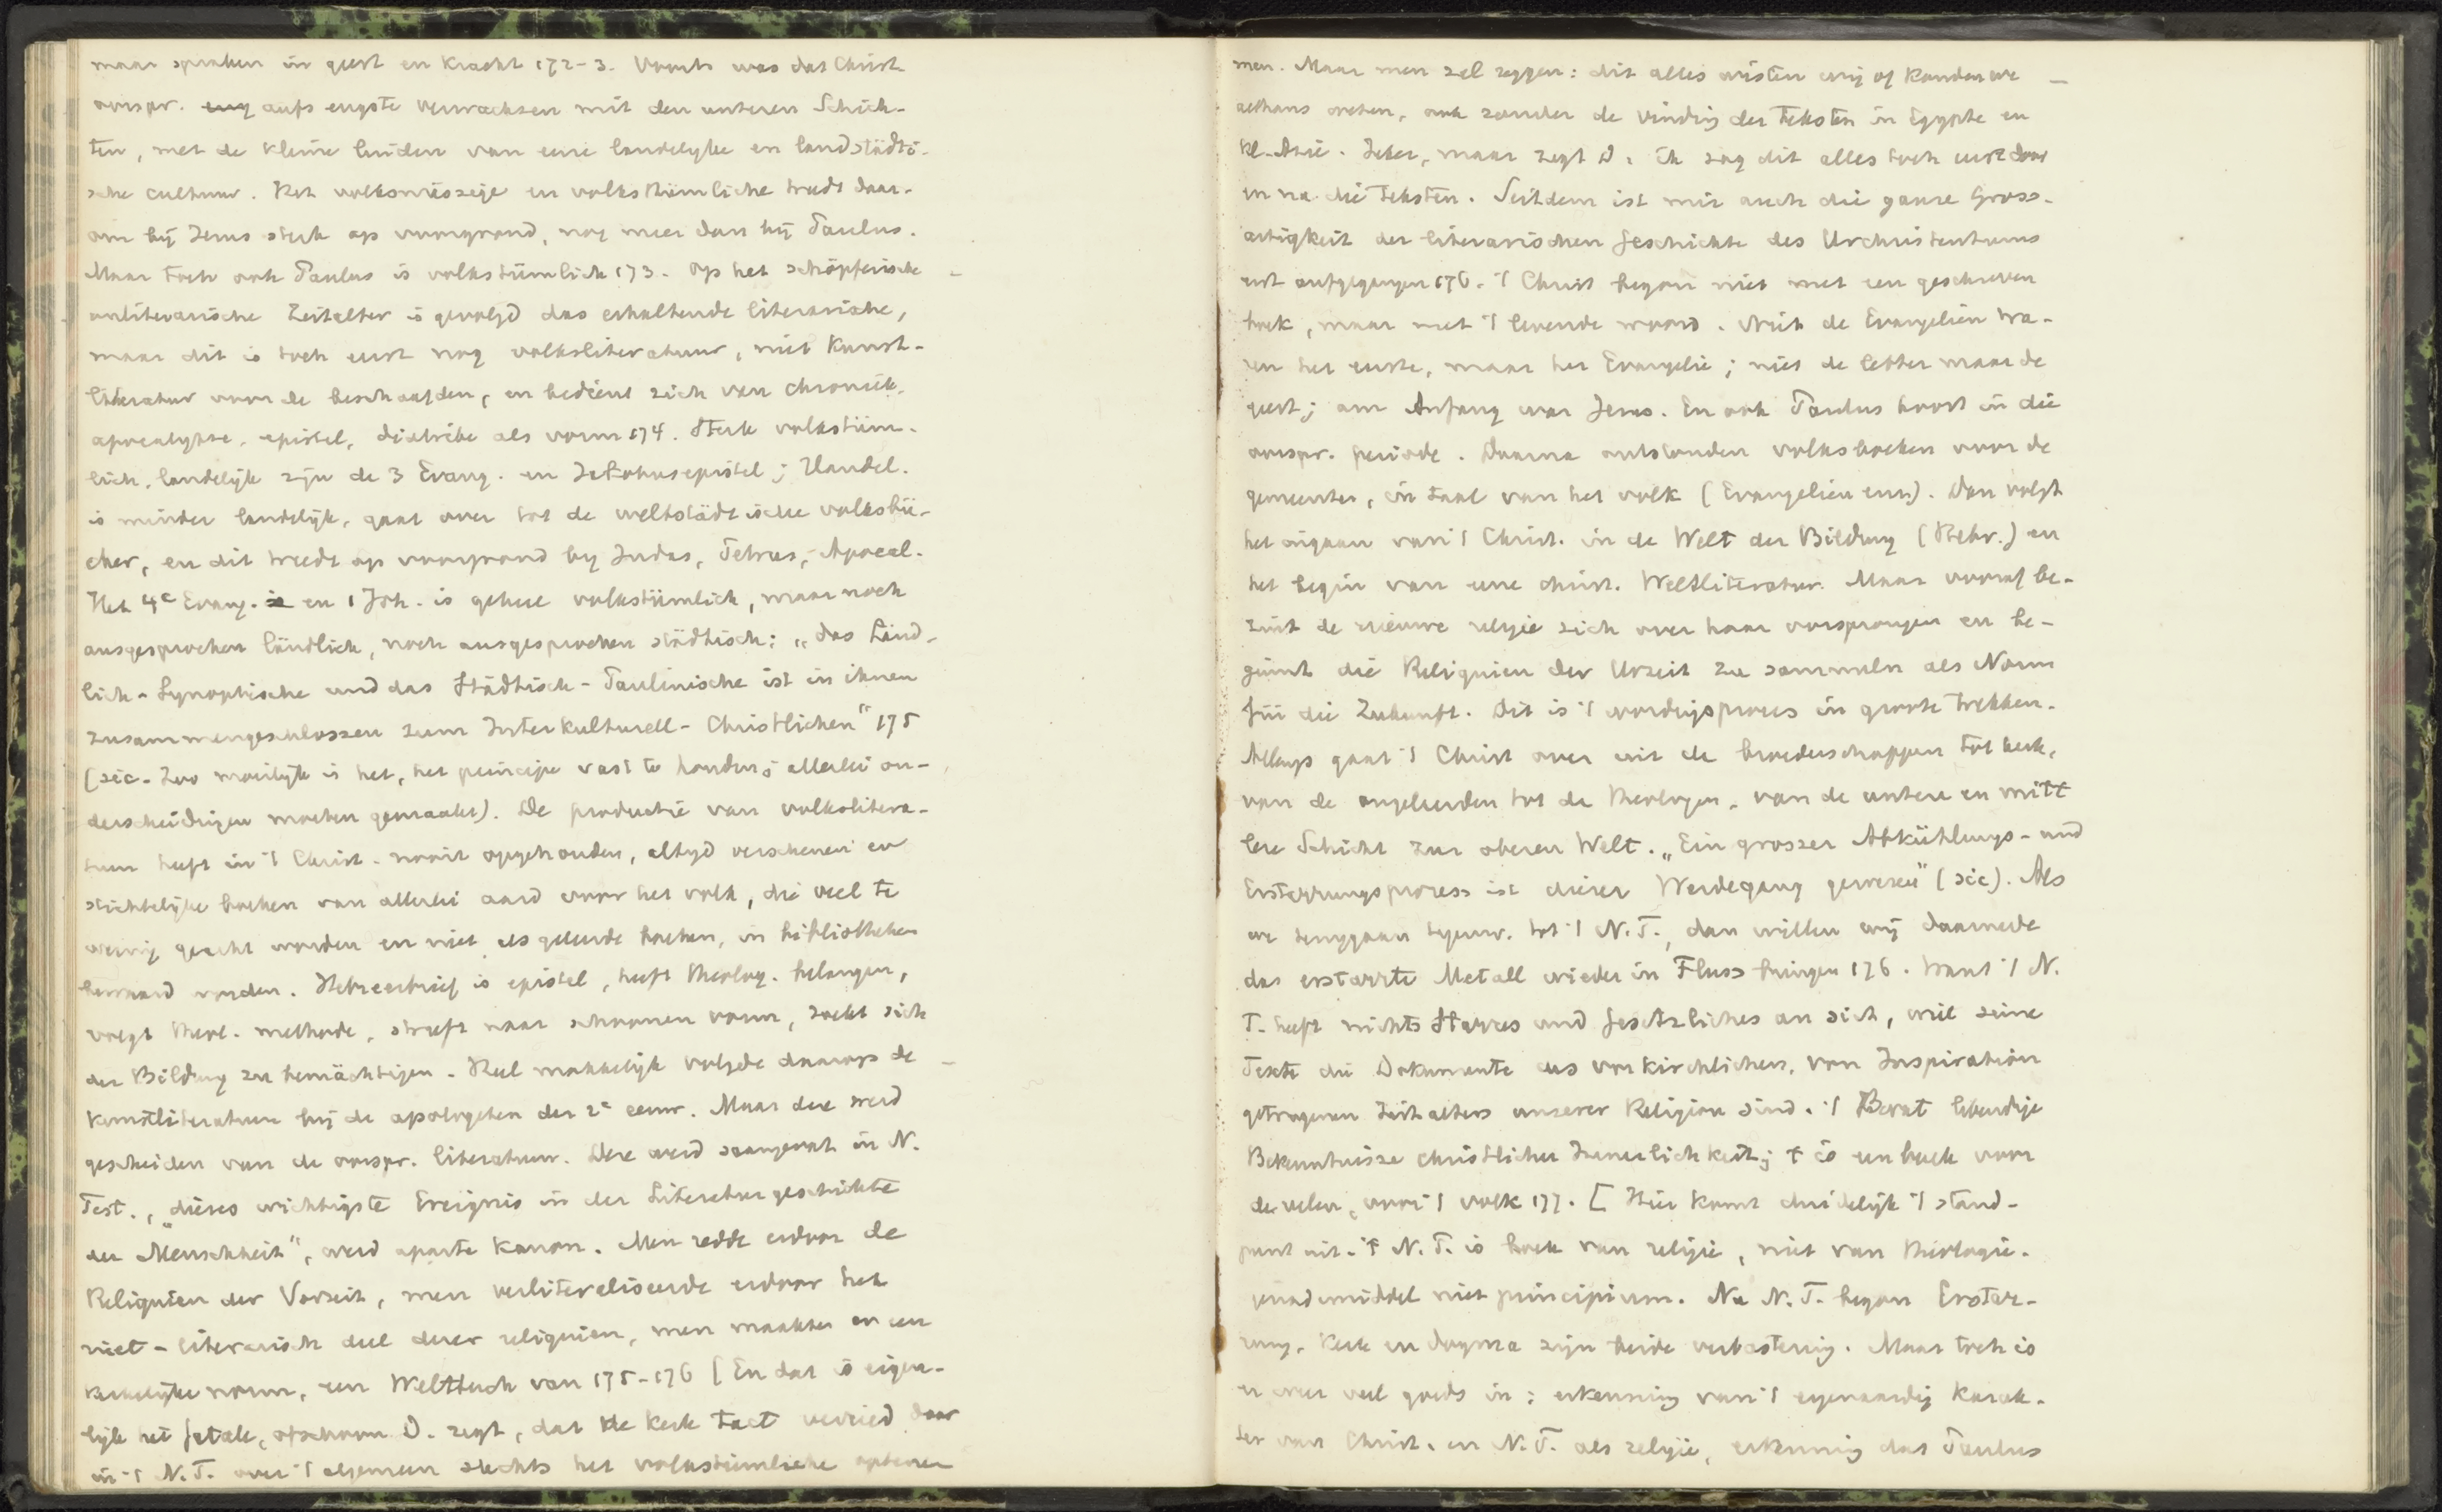 maar spraken in geest en kracht 172-3. Voorts was das Christ.
oorspr. eng aufs engste verwachsen mit den unteren Schich-
ten, met de kleine luiden van eene landelyke en landstädti-
sche cultuur. Het volksmässige en volksthümliche treedt daar-
om bij Jezus sterk op voorgrond, nog meer dan bij Paulus.
Maar toch ook Paulus is volkstümlich 173. Op het schöpferische
unliterarische Zeitalter is gevolgd das erhaltende literarische,
maar dit is toch eerst nog volksliteratuur, niet Kunst-
literatur voor de beschaafden, en bedient zich van chroniek,
apocalypse, epistel, diatribe als vorm 174. Sterk volkstüm-
lich, landelijk zijn de 3 Evang. en Jakobusepistel; Handel.
is minder landelijk, gaat over tot de weltstädtische volksbü-
cher, en dit treedt op voorgrond by Judas, Petrus, Apocal.
Het 4e Evang. is en 1 Joh. is geheel volkstümlich, maar noch
ausgesprochen ländlich, noch ausgesprochen städtisch: „das Länd-
lich-Synoptische und das Städtisch-Paulinische ist in ihnen
zusammengeschlossen zum Interkulturell-Christlichen" 175
(sic. Zoo moeilijk is het, het principe vast te houden; allerlei on-
derscheidingen moeten gemaakt). De productie van volkslitera-
tuur heeft in 't Christ. nooit opgehouden, altyd verschenen er
stichtelijke boeken van allerlei aard voor het volk, die veel te
weinig geacht worden en niet, als geleerde boeken, in bibliotheken
bewaard worden. Hebreerbrief is epistel, heeft theolog. belangen,
volgt theol. methode, streeft naar schoonen vorm, zoekt sich
der Bildung zu bemächtigen. Heel makkelijk volgde daarop de
kunstliteratuur bij de apologeten der 2e eeuw. Maar deze werd
gescheiden van de oorspr. literatuur. Deze werd saamgevat in N.
Test., „dieses wichtigste Ereignis in der Literaturgeschichte
der Menschheit", werd aparte Kanon. Men redde erdoor de
Reliquien der Vorzeit, men verliteraliseerde erdoor het
niet-literarisch deel dezer reliquien, men maakte er een
kerkelijke norm, een Weltbuch van 175-176 [En dat is eigen-
lijk het fatale, ofschoon D. zegt, dat de Kerk Tact verried door
in 't N.T. over 't algemeen slechts het volkstümliche optene-
men. Maar men zal zeggen: dit alles wisten wij of konden we
althans weten, ook zonder de vinding der teksten in Egypte en
Kl.-Azië. Zeker, maar zegt D. ik zag dit alles toch eerst door
en na die teksten. Seitdem ist mir auch die ganze Gross-
artigkeit der literarischen Geschichte des Urchristentums
erst aufgegangen 176. 't Christ begon niet met een geschreven
boek, maar met 't levende woord. Niet de Evangeliën wa-
ren het eerste, maar het Evangelie; niet de letter maar de
geest; am Anfang war Jesus. En ook Paulus hoort in die
oorspr. periode. Daarna ontstonden volksboeken voor de
gemeenten, in taal van het volk (Evangeliën enz.). Dan volgt
het ingaan van 't Christ. in de Welt der Bildung (Hebr.) en
het begin van eene christ. Weltliteratur. Maar vooraf be-
zint de nieuwe religie zich over haar oorsprongen en be-
gint die Reliquien der Urzeit zu sammeln als Norm
für die Zukunft. Dit is 't wordingsproces in groote trekken.
Allengs gaat 't Christ over uit de broederschappen tot kerk,
van de ongeleerden tot de theologen, van de untere en mitt
lere Schicht zur oberen Welt. „Ein grosser Abkühlungs- und
Erstarrungsprozess ist dieser Werdegang gewesen" (sic). Als
we teruggaan tegenw. tot 't N.T., dan willen wij daarmede
das erstarrte Metall wieder in Fluss bringen 176. Want 't N.
T. heeft nichts Starres und Gesetzliches an sich, wie seine
Texte die Dokumente des vorkirchlichen, von Inspiration
getragenen Zeitalters unserer Religion sind. 't Bevat lebendige
Bekenntnisse christlicher Innerlichkeit; 't is een boek voor
de velen, voor 't volk 177. [Hier komt duidelijk 't stand-
punt uit. 't N.T. is boek van religie, niet van theologie.
genademiddel niet principium. Na N.T. begon Erstar-
rung. Kerk en dogma zijn beide verbastering. Maar toch is
er weer veel goeds in: erkenning van 't eigenaardig karak-
ter van Christ. en N.T. als religie, erkenning dat Paulus